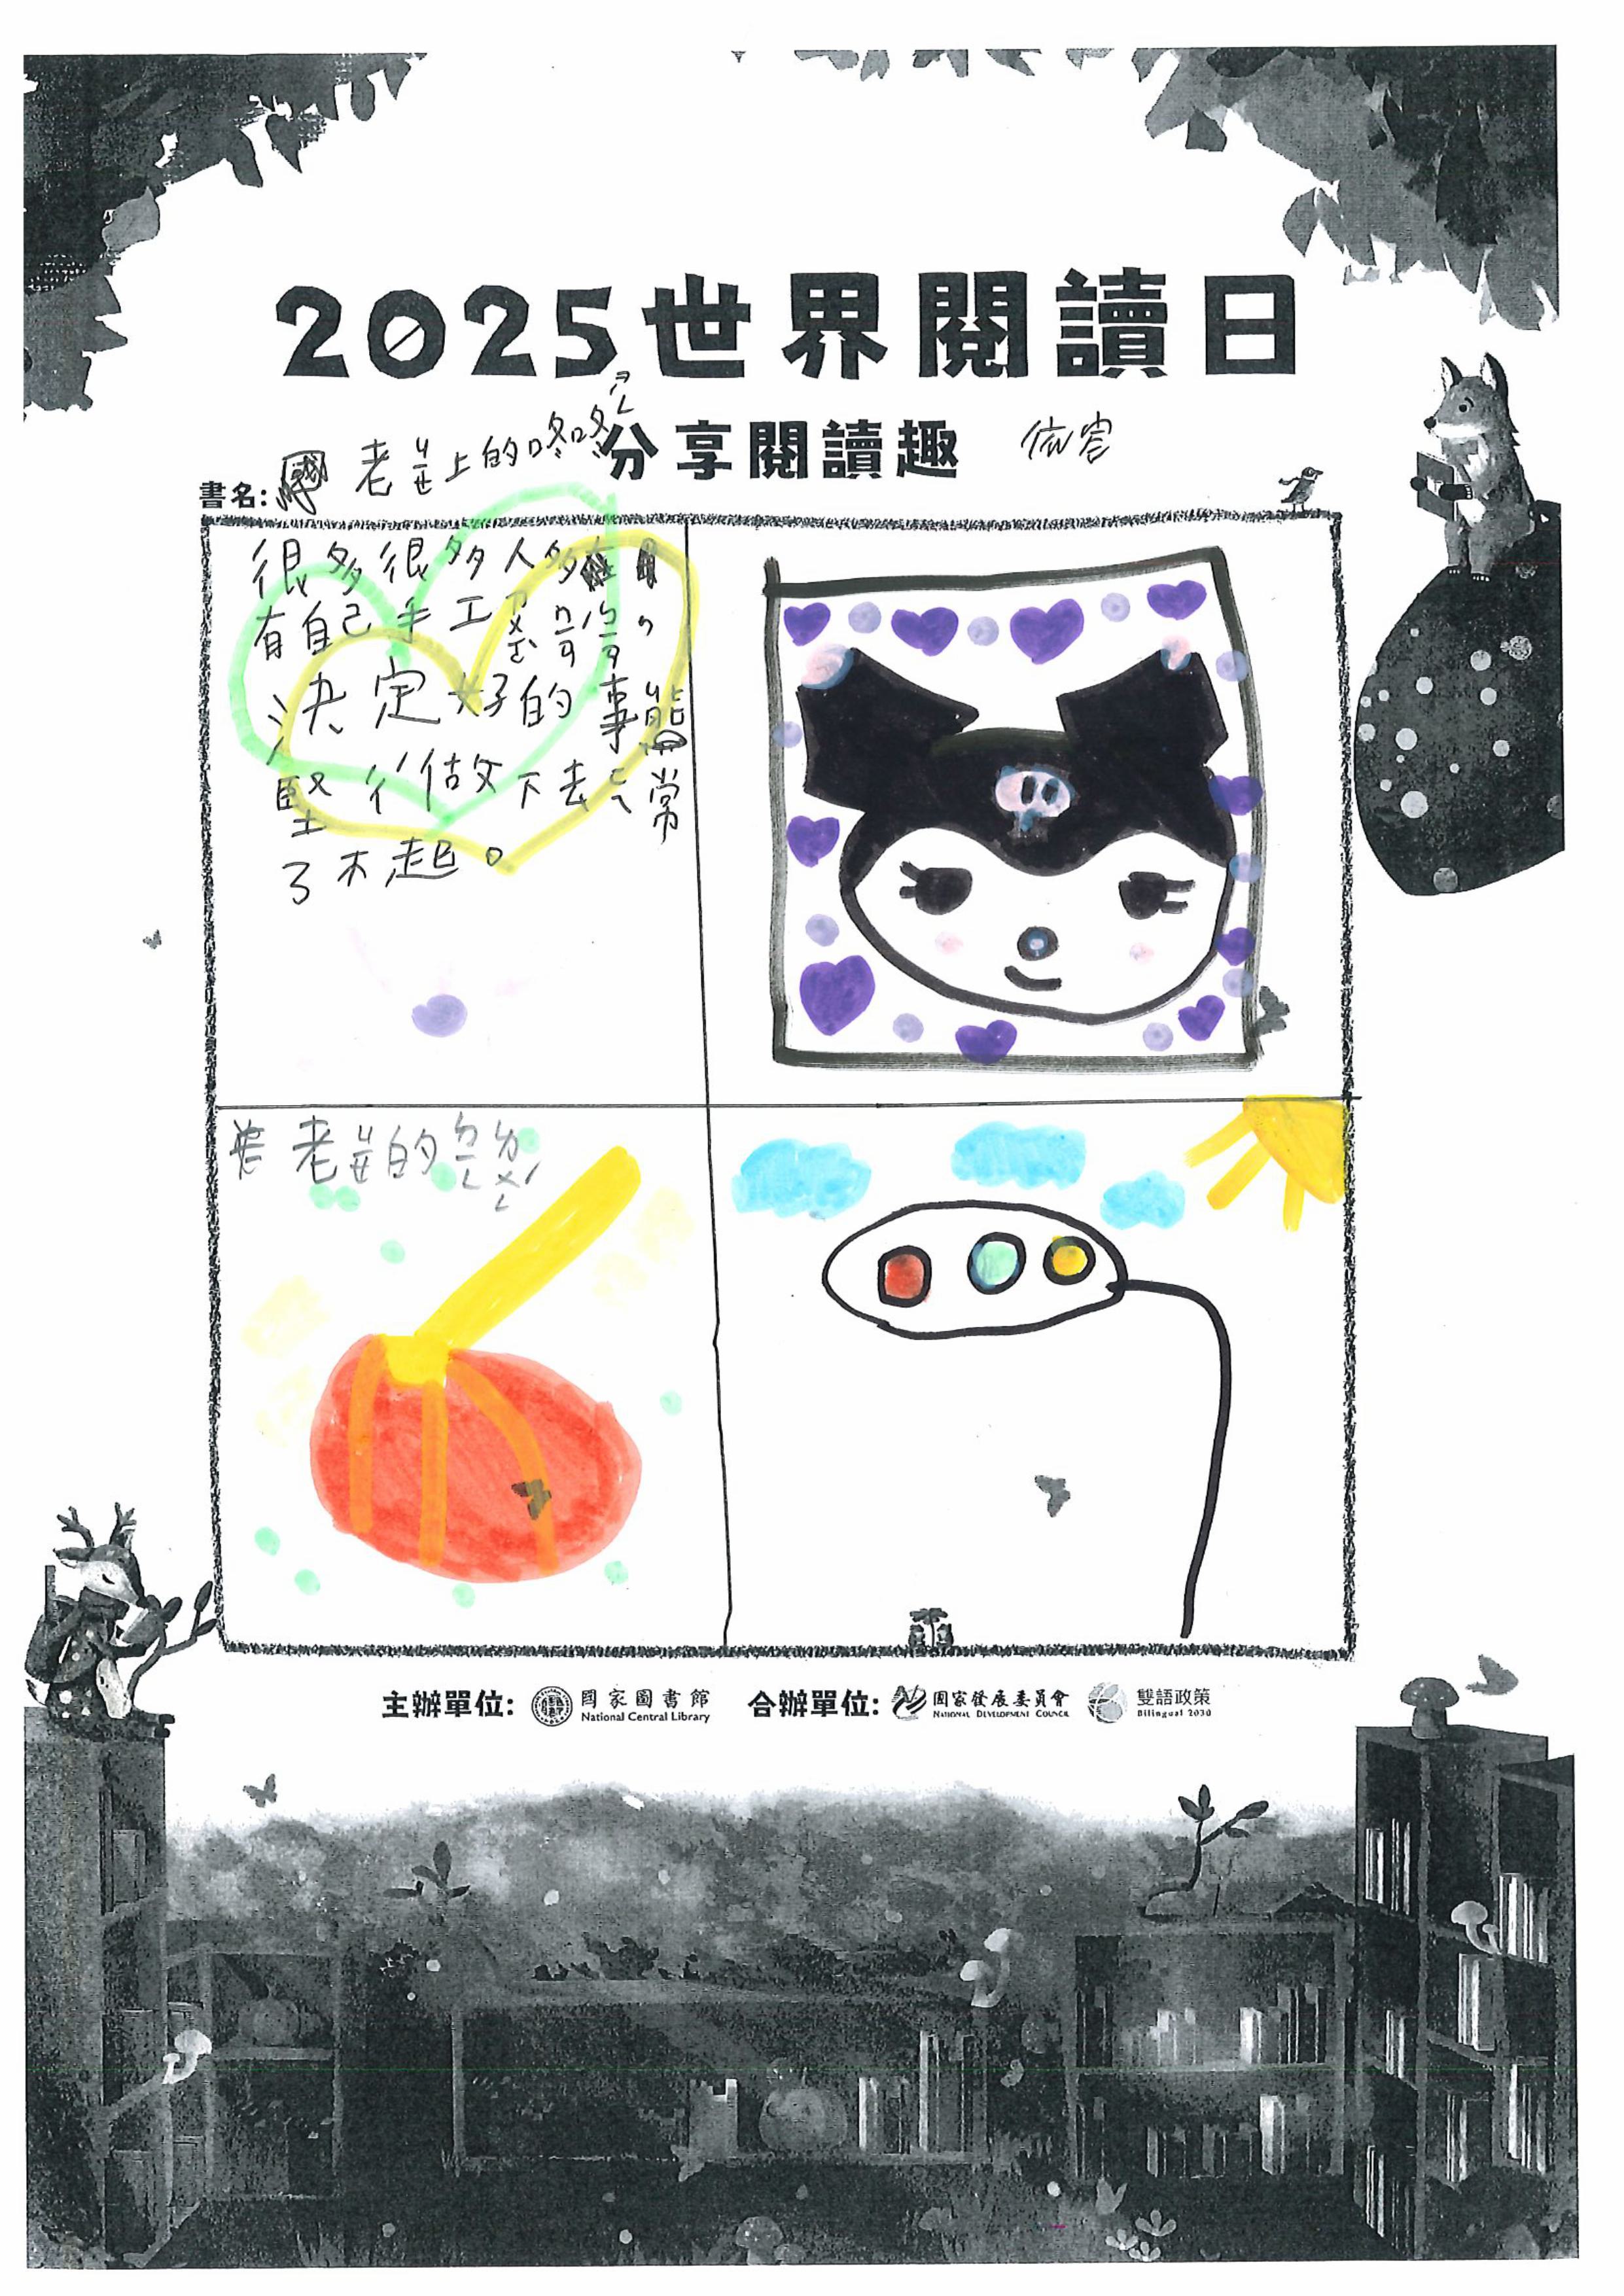 2025世界閱讀日
分享閱讀趣
書名: 老ㄐㄧㄝ上的咚咚
很多很多人
有自己手工
決定好的事能
堅 做下去 常
了不起。
老ㄐㄧㄝ的
主辦單位: 國家圖書館 合辦單位: 國家發展委員會 雙語政策
National Central Library NATIONAL DEVELOPMENT COUNCIL Bilingual 2030